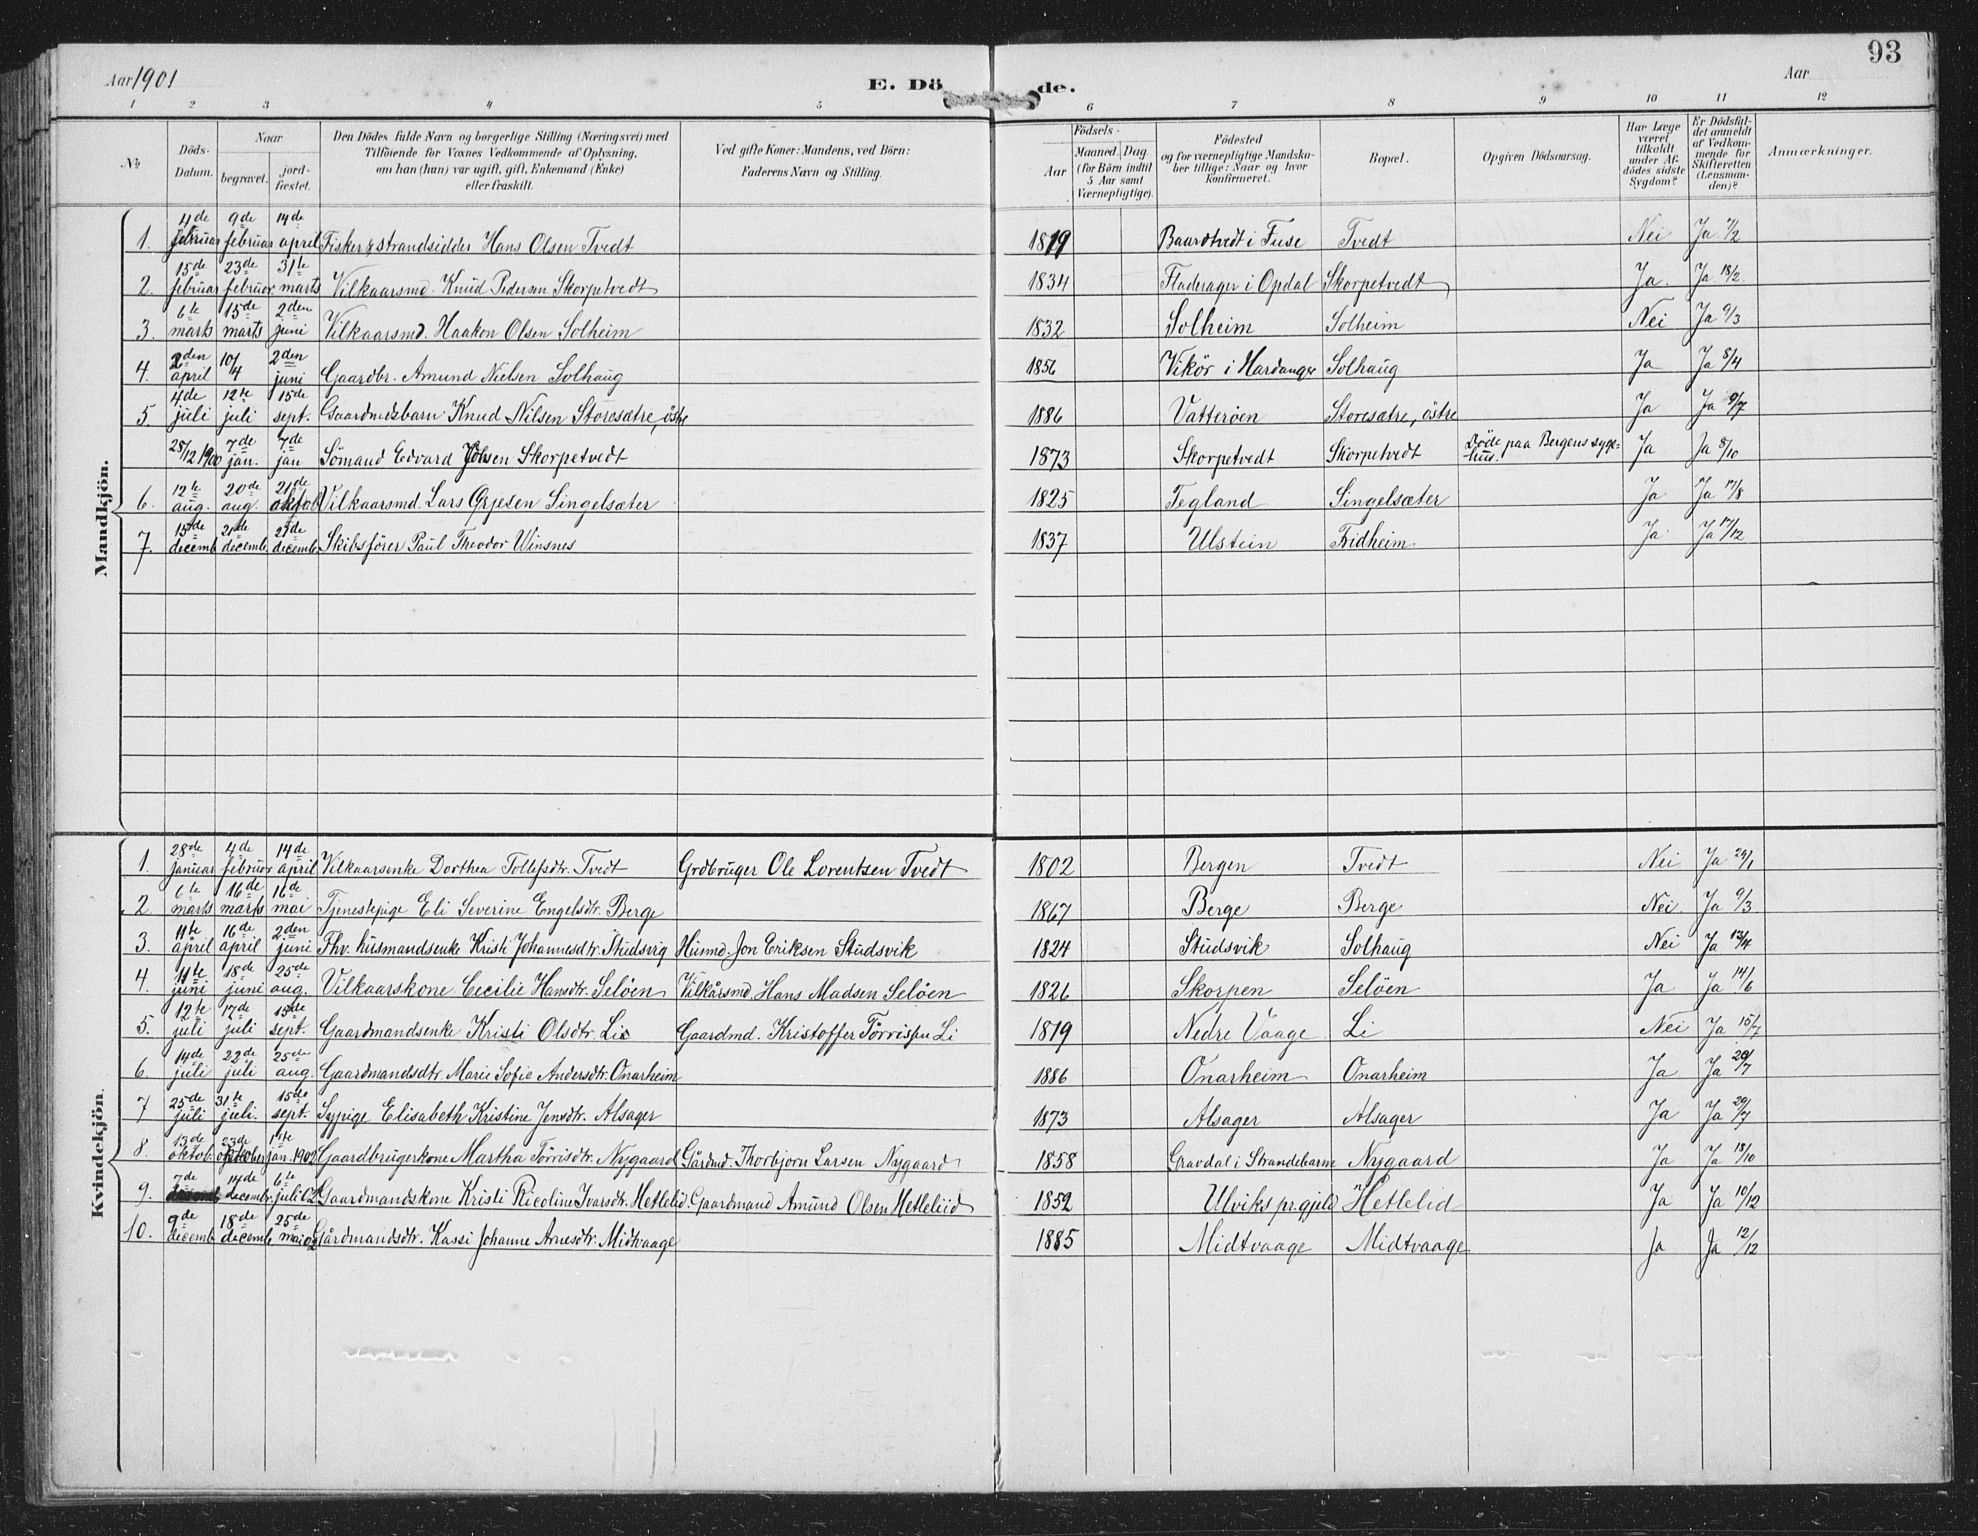 93
Aar 1901
E. Dö de.
Aar
1 2 3 4 5 6 7 8 9 10 11 12
No
Döds-Datum.
Naar
begravet.
jord-fæstet.
Den Dödes fulde Navn og borgerlige Stilling (Næringsvei) med
Tilföiende for Voxnes Vedkommende af Oplysning,
om han (hun) var ugift, gift, Enkemand (Enke)
eller fraskilt.
Ved gifte Koner: Mandens, ved Börn:
Faderens Navn og Stilling.
Födsels-
Aar
Maaned. Dag
(for Börn indtil
5 Aar samt
Værnepligtige).
Födested
og for værnepligtige Mandska-
ber tillige: Naar og hvor
konfirmeret.
Bopæl.
Opgiven Dödsaarsag.
Har Læge
været
tilkaldt
under Af-
dödes sidste
Sygdom?
Er Dödsfal-
det anmeldt
af Vedkom-
mende for
Skifteretten
(Lensman-
den)?
Anmærkninger.
Mandkjön.
1. 4de februar 9de februar 14de april Fisker & strandsidder Hans Olsen Tvedt 1819 Baardtvedt i Fuse Tvedt Nei Ja 7/2
2. 15de februar 23de februar 31te marts Vilkaarsmd. Knud Pedersen Skorpetvedt 1834 Fladerager i Opdal Skorpetvedt Ja. Ja 18/2.
3. 6te marts 15de marts 2den juni Vilkaarsmd. Haakon Olsen Solheim 1832 Solheim Solheim Nei Ja 9/3
4. 2den april 10/4 2den juni Gaardbr. Amund Nielsen Solhaug 1856 Vikör i Hardanger Solhaug Ja Ja 8/4
5. 4de juli 12te juli 15de sept. Gaardmdsbarn Knud Nilsen Storesætre, östre 1886 Vatteröen Storesætre, östre Ja Ja 9/7
28/12 1900 7de jan. 7de jan Sömand Edvard Johnsen Skorpetvedt 1873 Skorpetvedt Skorpetvedt Döde paa Bergens syge-hus. Ja Ja 8/10
6. 12te aug. 20de aug. 21de oktob. Vilkaarsmd. Lars Ørjesen Singelsæter 1825 Tegland Singelsæter Ja Ja 17/8
7. 15de decemb 21de decemb. 21de decemb. Skibsförer Paul Theodor Winsnes 1837 Ulstein Fridheim Ja Ja 17/12
Kvindekjön.
1. 28de januar 4de februar 14de april Vilkaarsenke Dorthea Tollefsdtr. Tvedt Grdbruger Ole Lorentsen Tvedt 1802 Bergen Tvedt Nei Ja 29/1
2. 6te marts 16de marts 16de mai Tjenestepige Eli Severine Engelsdtr. Berge 1867 Berge Berge Nei. Ja 9/3
3. 11te april 16de april 2den juni Fhv. husmandsenke Kristi Johannesdtr. Studsvig Husmd. Jon Eriksen Studsvik 1824 Studsvik Solhaug Nei Ja 13/4
4. 11te juni 18de juni 25de aug. Vilkaarskone Cecilie Hansdtr. Selöen Vilkårsmd. Hans Madsen Selöen 1826 Skorpen Selöen Ja Ja 14/6
5. 12te juli 17de juli 15de sept. Gaardmandsenke Kristi Olsdtr. Li Gaardmd. Kristoffer Törrissen Li 1819 Nedre Vaage Li Nei Ja 15/7
6. 14de juli 22de juli 25de aug. Gaardmandsdtr. Marie Sofie Andersdtr. Onarheim 1886 Onarheim Onarheim Ja Ja 20/7
7 25de juli 31te juli. 15de sept. Sypige Elisabeth Kristine Jensdtr. Alsager 1873 Alsager Alsager Ja Ja 29/7
8. 13de oktob. 23de oktober 1ste jan. 1902 Gaardbrugerkone Martha Törrisdtr. Nygaard Gårdmd. Thorbjorn Larsen Nygaard 1858 Gravdal i Strandebarm Nygaard Ja Ja 18/10
9. 7de decemb. 14de decembr. 6te juli 02 Gaardmandskone Kristi Nicoline Ivarsdt. Hetlelid. Gaardmand Amund Olsen Hetleliid 1852 Ulviks pr.gjeld Hetlelid Ja Ja 10/12
10. 9de decemb. 18de decemb. 25de mai 02 Gårdmandsdtr. Kassi Johanne Arnesdtr. Midtvaage 1885 Midtvaage Midtvaage Ja Ja 12/12